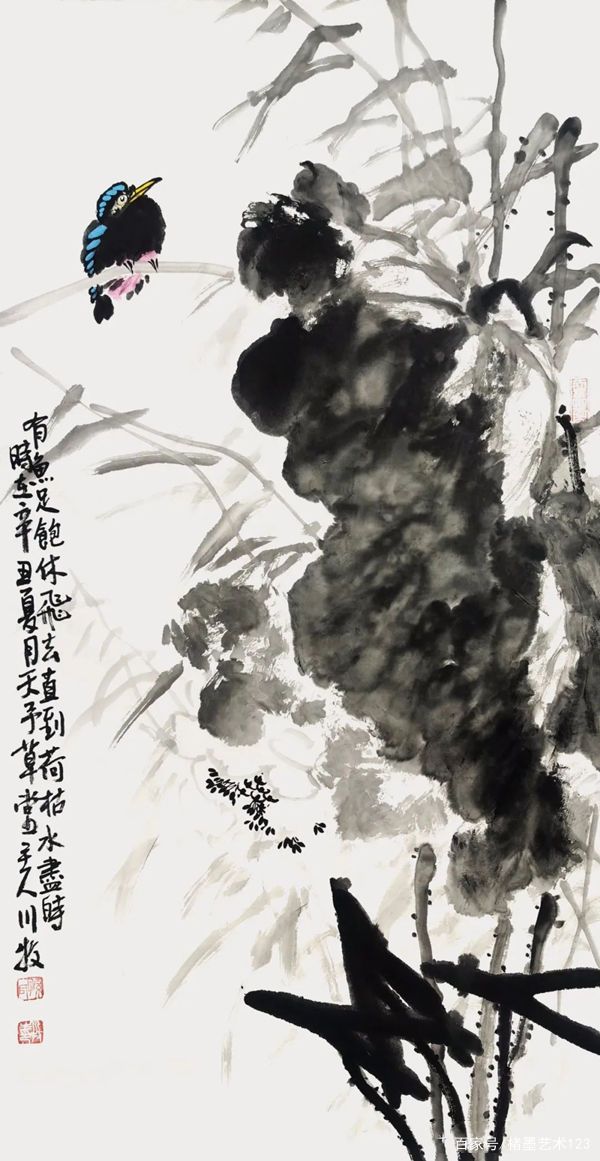 有魚足飽休飛去直到荷枯水盡時
時在辛丑夏月天予草堂主人川牧
百家号/楮墨艺术123